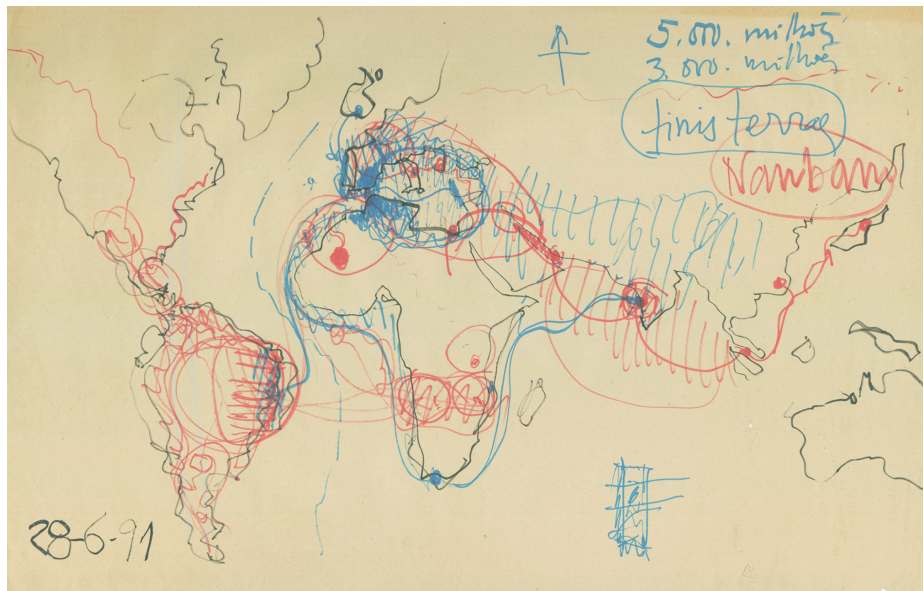 5.000. milhões
3.000. milhões
finis terrae
Nanban
28-6-91